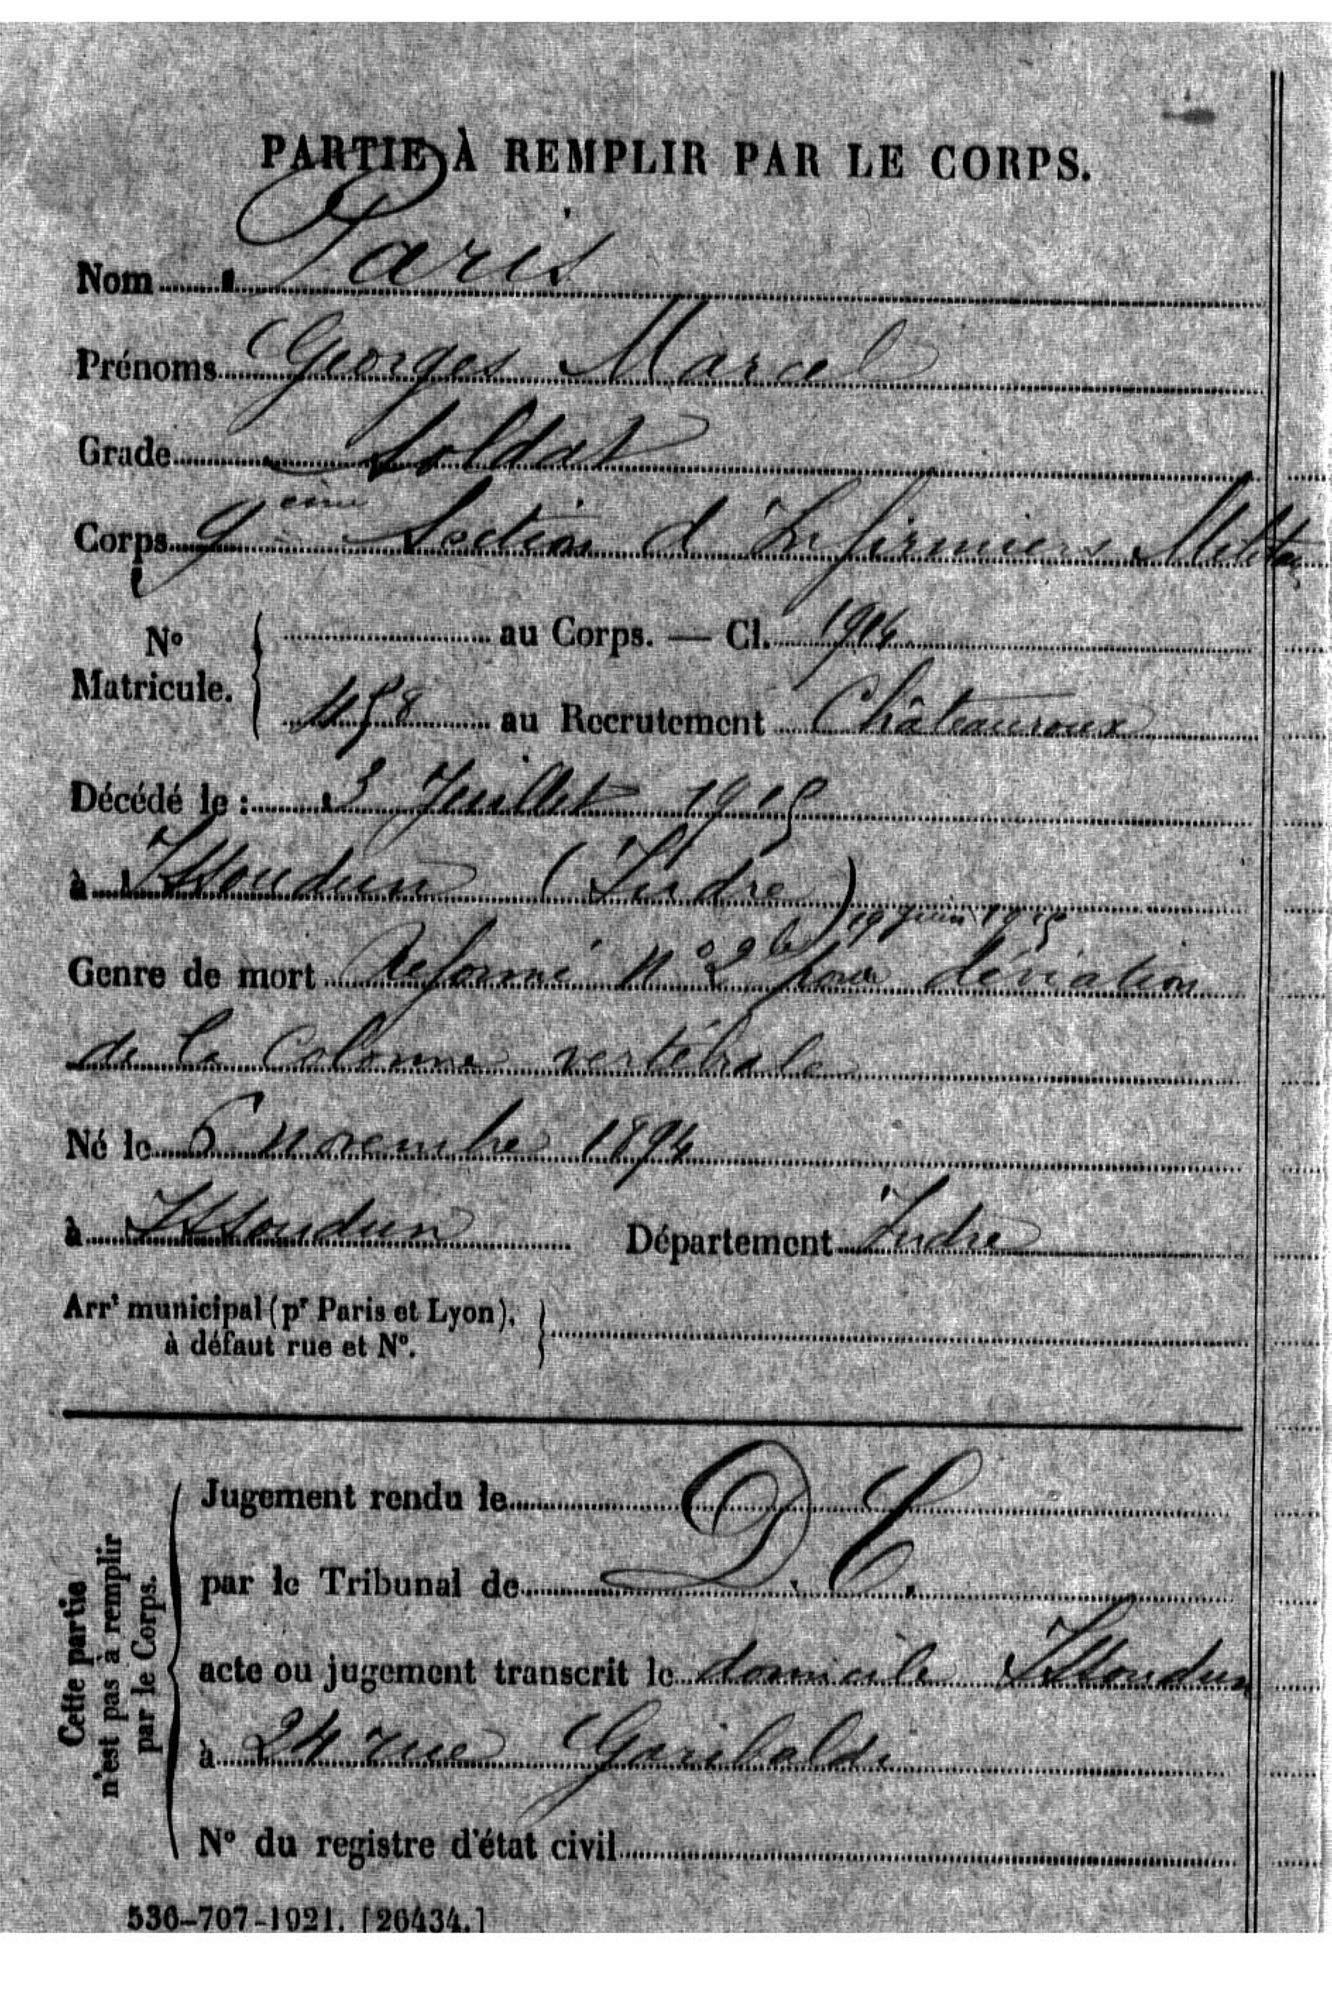 PARTIE À REMPLIR PAR LE CORPS.
Nom Paris
Prénoms Georges Marcel
Grade Soldat
Corps 9eme Section d'Infirmiers Milita
N° Matricule. au Corps. — Cl. 1914
458 au Recrutement Châteauroux
Décédé le : 3 Juillet 1915
à Issoudun (Indre)
19 Juin 1915
Genre de mort Réformé N° 2 pour déviation
de la Colonne vertébrale
Né le 6 novembre 1894
à Issoudun Département Indre
Arrt municipal (pr Paris et Lyon),
à défaut rue et N°.
Cette partie
n'est pas à remplir
par le Corps.
Jugement rendu le
par le Tribunal de D. C.
acte ou jugement transcrit le domicile Issoudun
à 24 rue Garibaldi
N° du registre d'état civil
536-707-1921. [26434.]